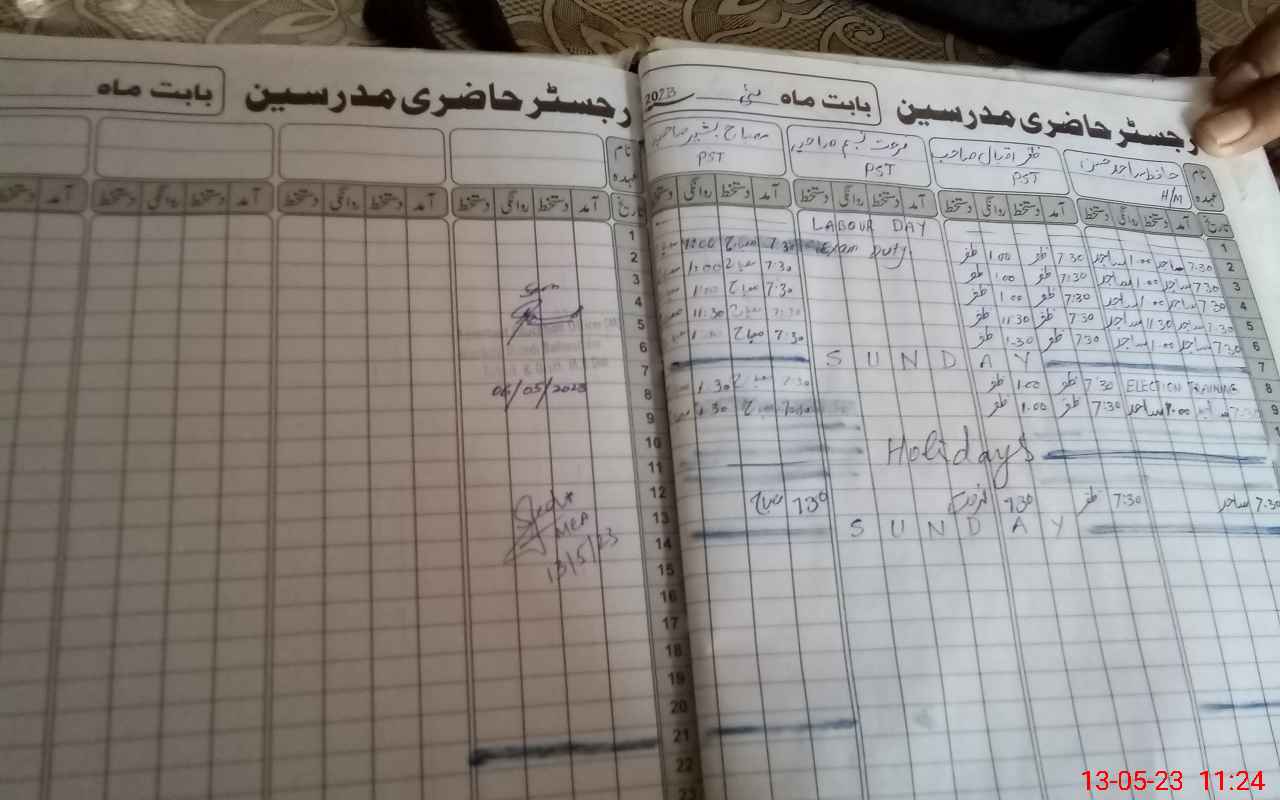 رجسٹر حاضری مدرسین
بابت ماہ مئی 2023
نام
عہدہ
H/M
ظفر اقبال صاحب
PST
PST
مصباح بشیر صاحبہ
PST
تاریخ آمد دستخط روانگی دستخط آمد دستخط روانگی دستخط آمد دستخط روانگی دستخط آمد دستخط روانگی دستخط
1 LABOUR DAY
2 7.30 ساجد 1.00 ساجد 7.30 ظفر 1.00 ظفر Exam Duty 7.30 مصباح 1:00
3 7.30 ساجد 1.00 ساجد 7:30 ظفر 1.00 ظفر 7:30 مصباح 1:00
4 7.30 ساجد 1.00 ساجد 7:30 ظفر 1.00 ظفر 7:30 مصباح 1:00
5 7.30 ساجد 11.30 ساجد 7:30 ظفر 11:30 ظفر 7:30 مصباح 11:30
6 7.30 ساجد 1.00 ساجد 7:30 ظفر 1.30 ظفر 7:30 مصباح
7 SUNDAY
8 ELECTION TRAINING 7:30 ظفر 1.00 ظفر 7:30 مصباح 1:30
9 7:30 ساجد ساجد 7:30 ظفر 1.00 ظفر 7:30 مصباح 1:30
10
11 Holidays
12
13 7.30 ساجد 7:30 ظفر 7:30 7:30 مصباح
14 SUNDAY
15
16
17
18
19
20
21
22
23
رجسٹر حاضری مدرسین
بابت ماہ
نام
عہدہ
تاریخ آمد دستخط روانگی دستخط آمد دستخط روانگی دستخط آمد دستخط روانگی دستخط آمد دستخط
Seen
06/05/2023
MEA
13/5/23
13-05-23 11:24